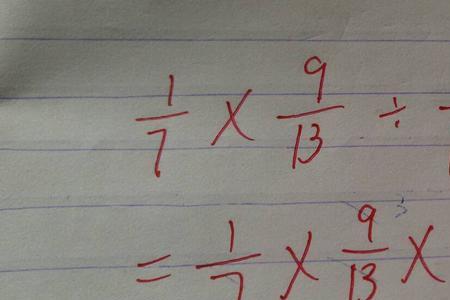 1/7 × 9/13 ÷
= 1/7 × 9/13 ×